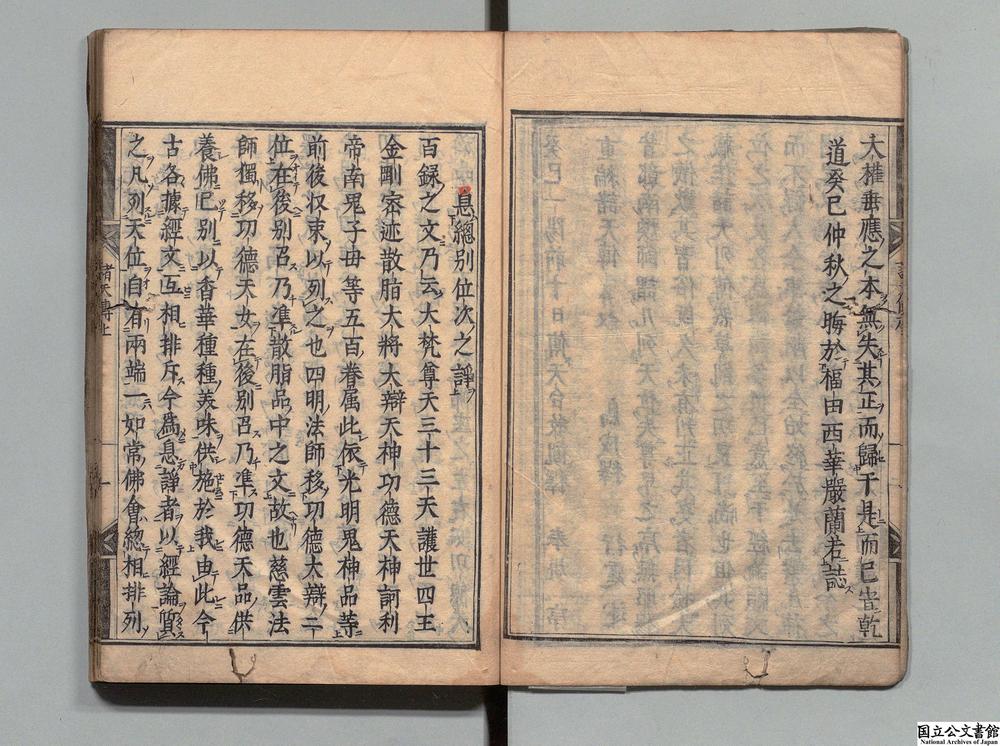 大權垂應之本無失其正而歸于是而已旹乾
道癸巳仲秋之晦於楅由西華嚴蘭若誌
息總別位次之諍
百録之文乃云大梵尊天三十三天護世四王
金剛宻迹散脂大將大辯天神功德天神訶利
帝南鬼子母等五百眷属此依光明鬼神品等
前後収束以列之也四明法師移功德大辯二
位在後別召乃凖散脂品中之文故也慈雲法
師獨移功德天女在後別召乃凖功德天品供
養佛已別以香華種種美味供施於我由此今
古各據經文互相排斥今為息諍者以經論質
之凡列天位自有兩端一如常佛會緫相排列
諸天傳上
国立公文書館
National Archives of Japan